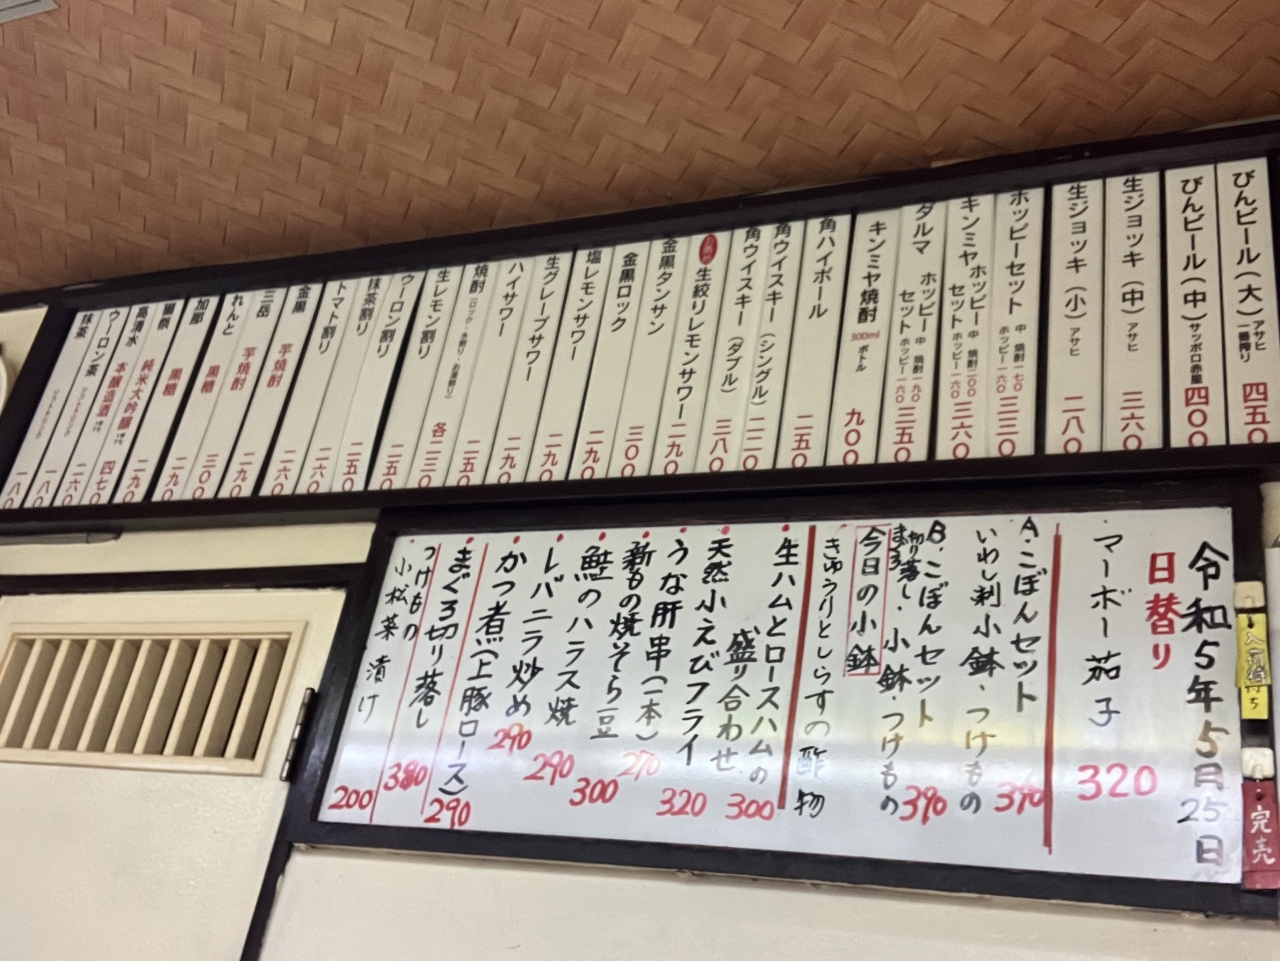 びんビール(大)アサヒ 一番搾り 四五〇
びんビール(中)サッポロ赤星 四〇〇
生ジョッキ(中)アサヒ 三六〇
生ジョッキ(小)アサヒ 二八〇
ホッピーセット 中 焼酎一七〇 ホッピー一六〇 三三〇
キンミヤホッピーセット 中 焼酎二〇〇 ホッピー一六〇 三六〇
ダルマ ホッピーセット 中 焼酎一九〇 ホッピー一六〇 三五〇
キンミヤ焼酎 300ml ボトル 九〇〇
角ハイボール 二五〇
角ウイスキー(シングル)二二〇
角ウイスキー(ダブル)三八〇
生絞りレモンサワー 二九〇
金黒タンサン 三〇〇
金黒ロック 二九〇
塩レモンサワー 二九〇
生グレープサワー 二九〇
ハイサワー 二五〇
焼酎(ロック・水割り・お湯割り)各二三〇
生レモン割り 二五〇
ウーロン割り 二五〇
抹茶割り 二六〇
トマト割り 二六〇
金黒 芋焼酎 二九〇
三岳 芋焼酎 三〇〇
れんと 黒糖 二九〇
加那 黒糖 二九〇
獺祭 純米大吟醸 四七〇
高清水 本醸造酒 二六〇
ウーロン茶 ソフトドリンク 一八〇
抹茶 ソフトドリンク 一八〇
令和5年5月25日
日替り
マーボー茄子 320
A・こぼんセット
いわし刺小鉢・つけもの 390
B・こぼんセット
まぐろ切り落し・小鉢・つけもの 390
今日の小鉢
きゅうりとしらすの酢物
生ハムとロースハムの盛り合わせ 300
天然小えびフライ 320
うな肝串(一本) 270
新もの焼そら豆 300
鮭のハラス焼 290
レバニラ炒め 290
かつ煮(上豚ロース) 290
まぐろ切り落し 380
つけもの
小松菜漬け 200
完売